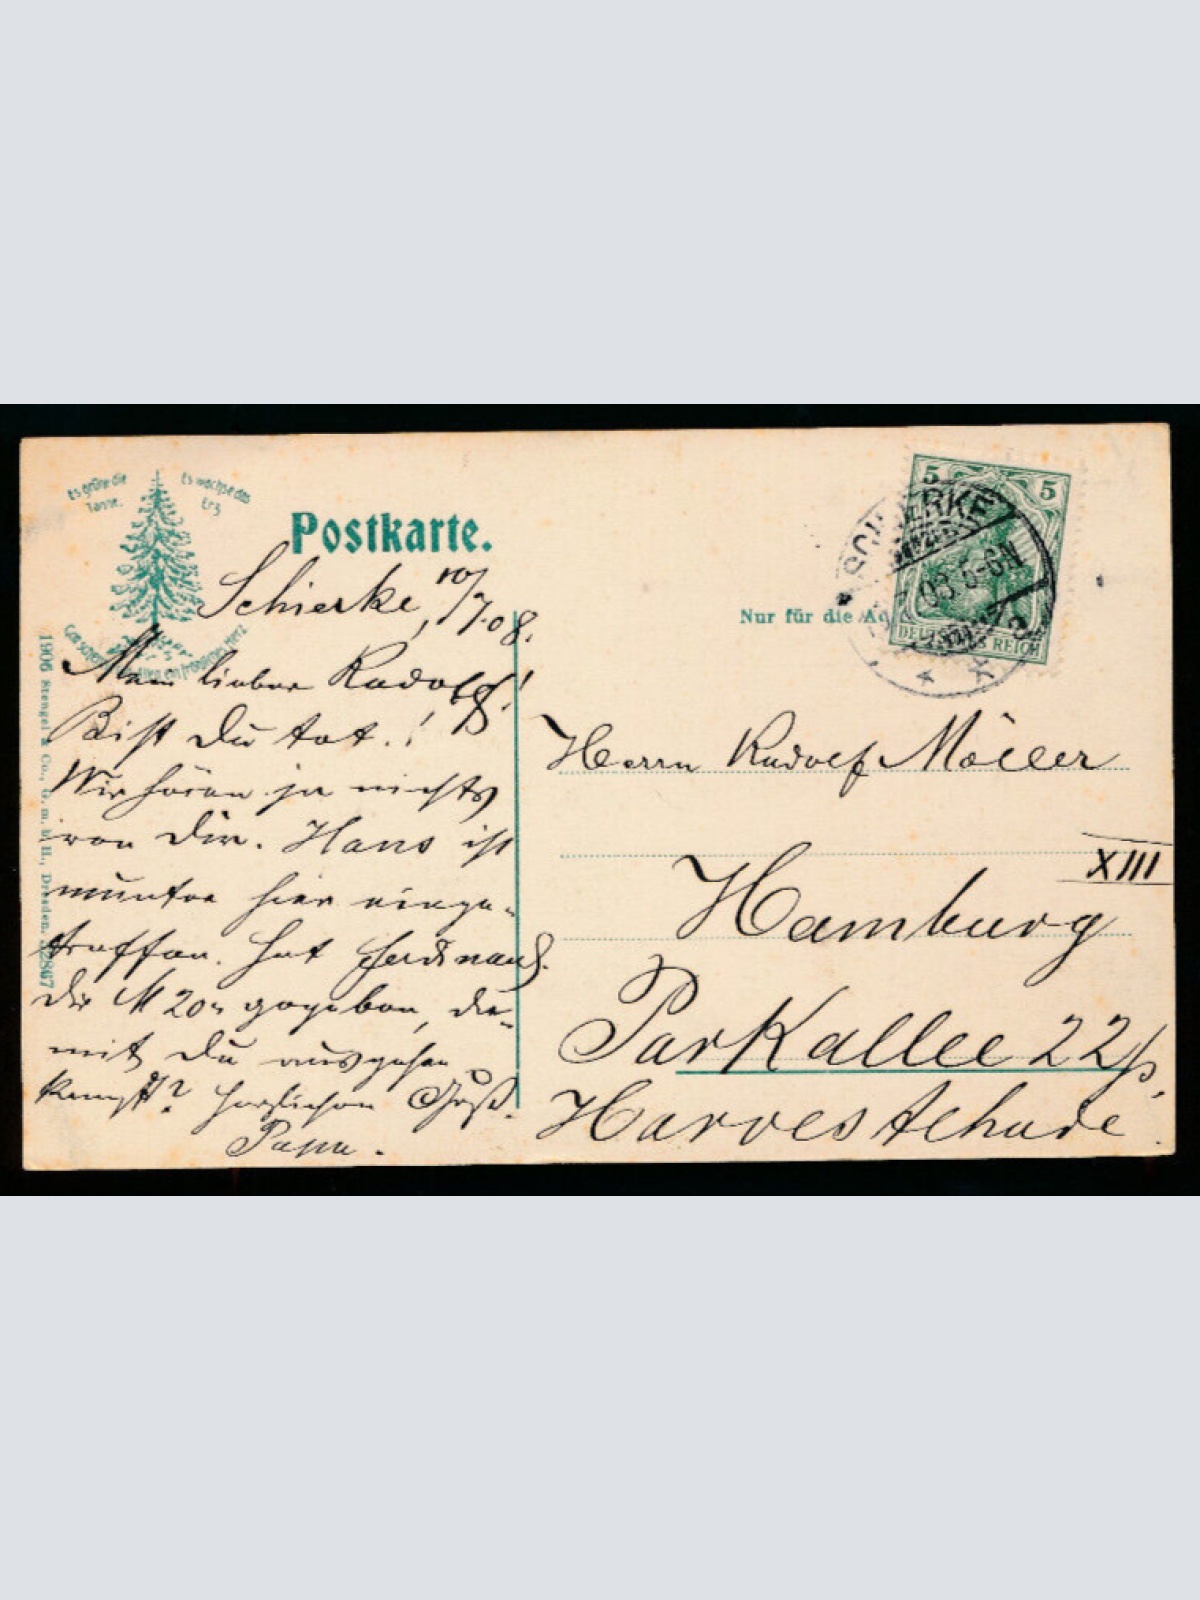 Es grüne die
Tanne.
Es wachse das
Erz
Postkarte.
Schierke, 10/7.08.
Mein lieber Rudolf!
Bist Du tot.!
Wir hören ja nichts
von Dir. Hans ist
munter hier einge-
troffen. Hat Ferdinand
Dir M 20,- gegeben, da-
mit Du ausgehen
kannst? Herzlichen Gruß.
Papa.
1906 Stengel & Co., G. m. b. H., Dresden.
5 5
DEUTSCHES REICH
SCHIERKE
08 5-6N
Nur für die
Herrn Rudolf Möller
XIII
Hamburg
Parkallee 22 p.
Harvestehude.